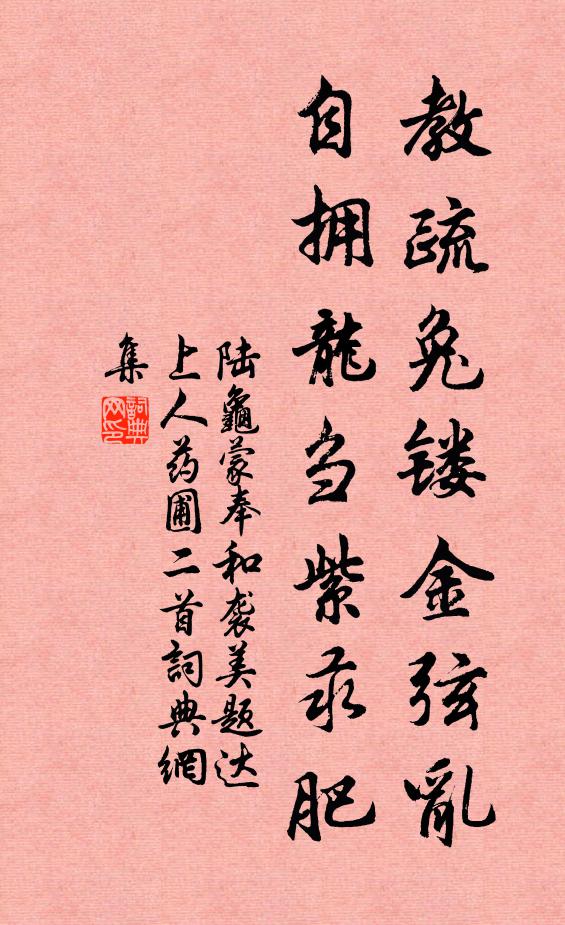 教疏兔镂金弦亂
自拥龍刍紫汞肥
陆龜蒙奉和袭美题达
上人药圃二首詞典網
集
詞典
网印